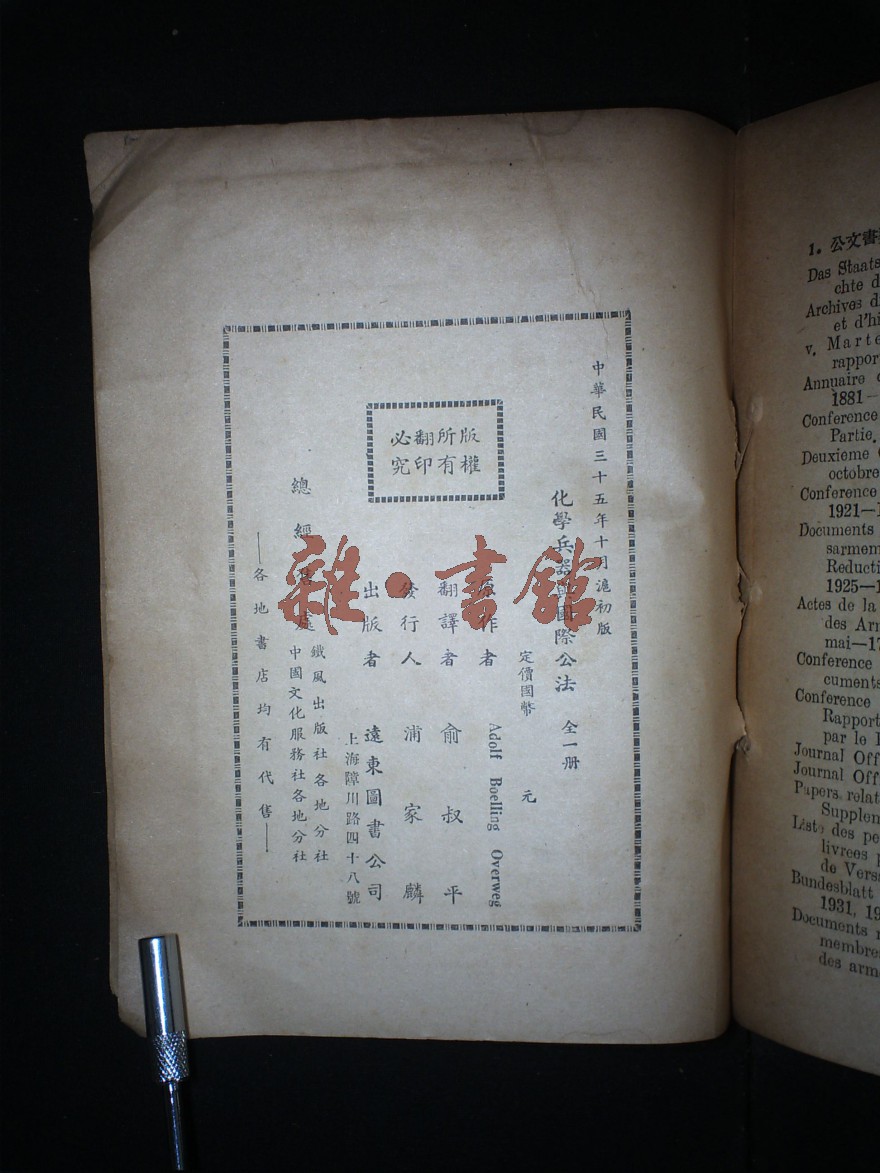 中華民國三十五年十月滬初版
化學兵器與國際公法 全一册
定價國幣 元
版權
所有
翻印
必究
原作者 Adolf Boelling Overweg
翻譯者 俞叔平
發行人 浦家麟
出版者 遠東圖書公司
上海障川路四十八號
總經售處
鐵風出版社各地分社
中國文化服務社各地分社
——各地書店均有代售——
雜·書館
1. 公文書
Das Staats
chte d
Archives d
et d'hi
v. Marte
rappor
Annuaire
1881-
Conference
Partie.
Deuxieme
octobre
Conference
1921—1
Documents
sarmem
Reducti
1925—1
Actes de la
des Arm
mai—17
Conference
cuments
Conference
Rapport
par le
Journal Off
Journal Off
Papers relat
Supplem
Liste des pe
livrees p
de Vers
Bundesblatt
1931, 19
Documents
membres
des arm